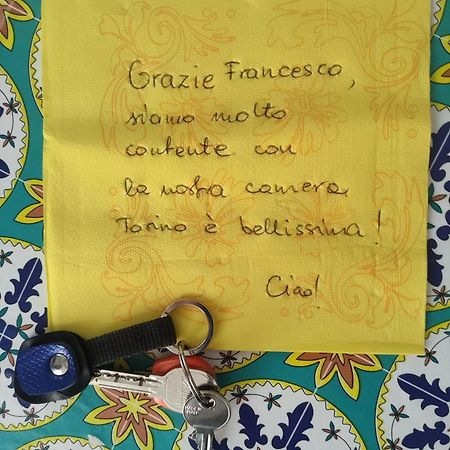 Grazie Francesco,
siamo molto
contente con
la nostra camera
Torino è bellissima!
Ciao!